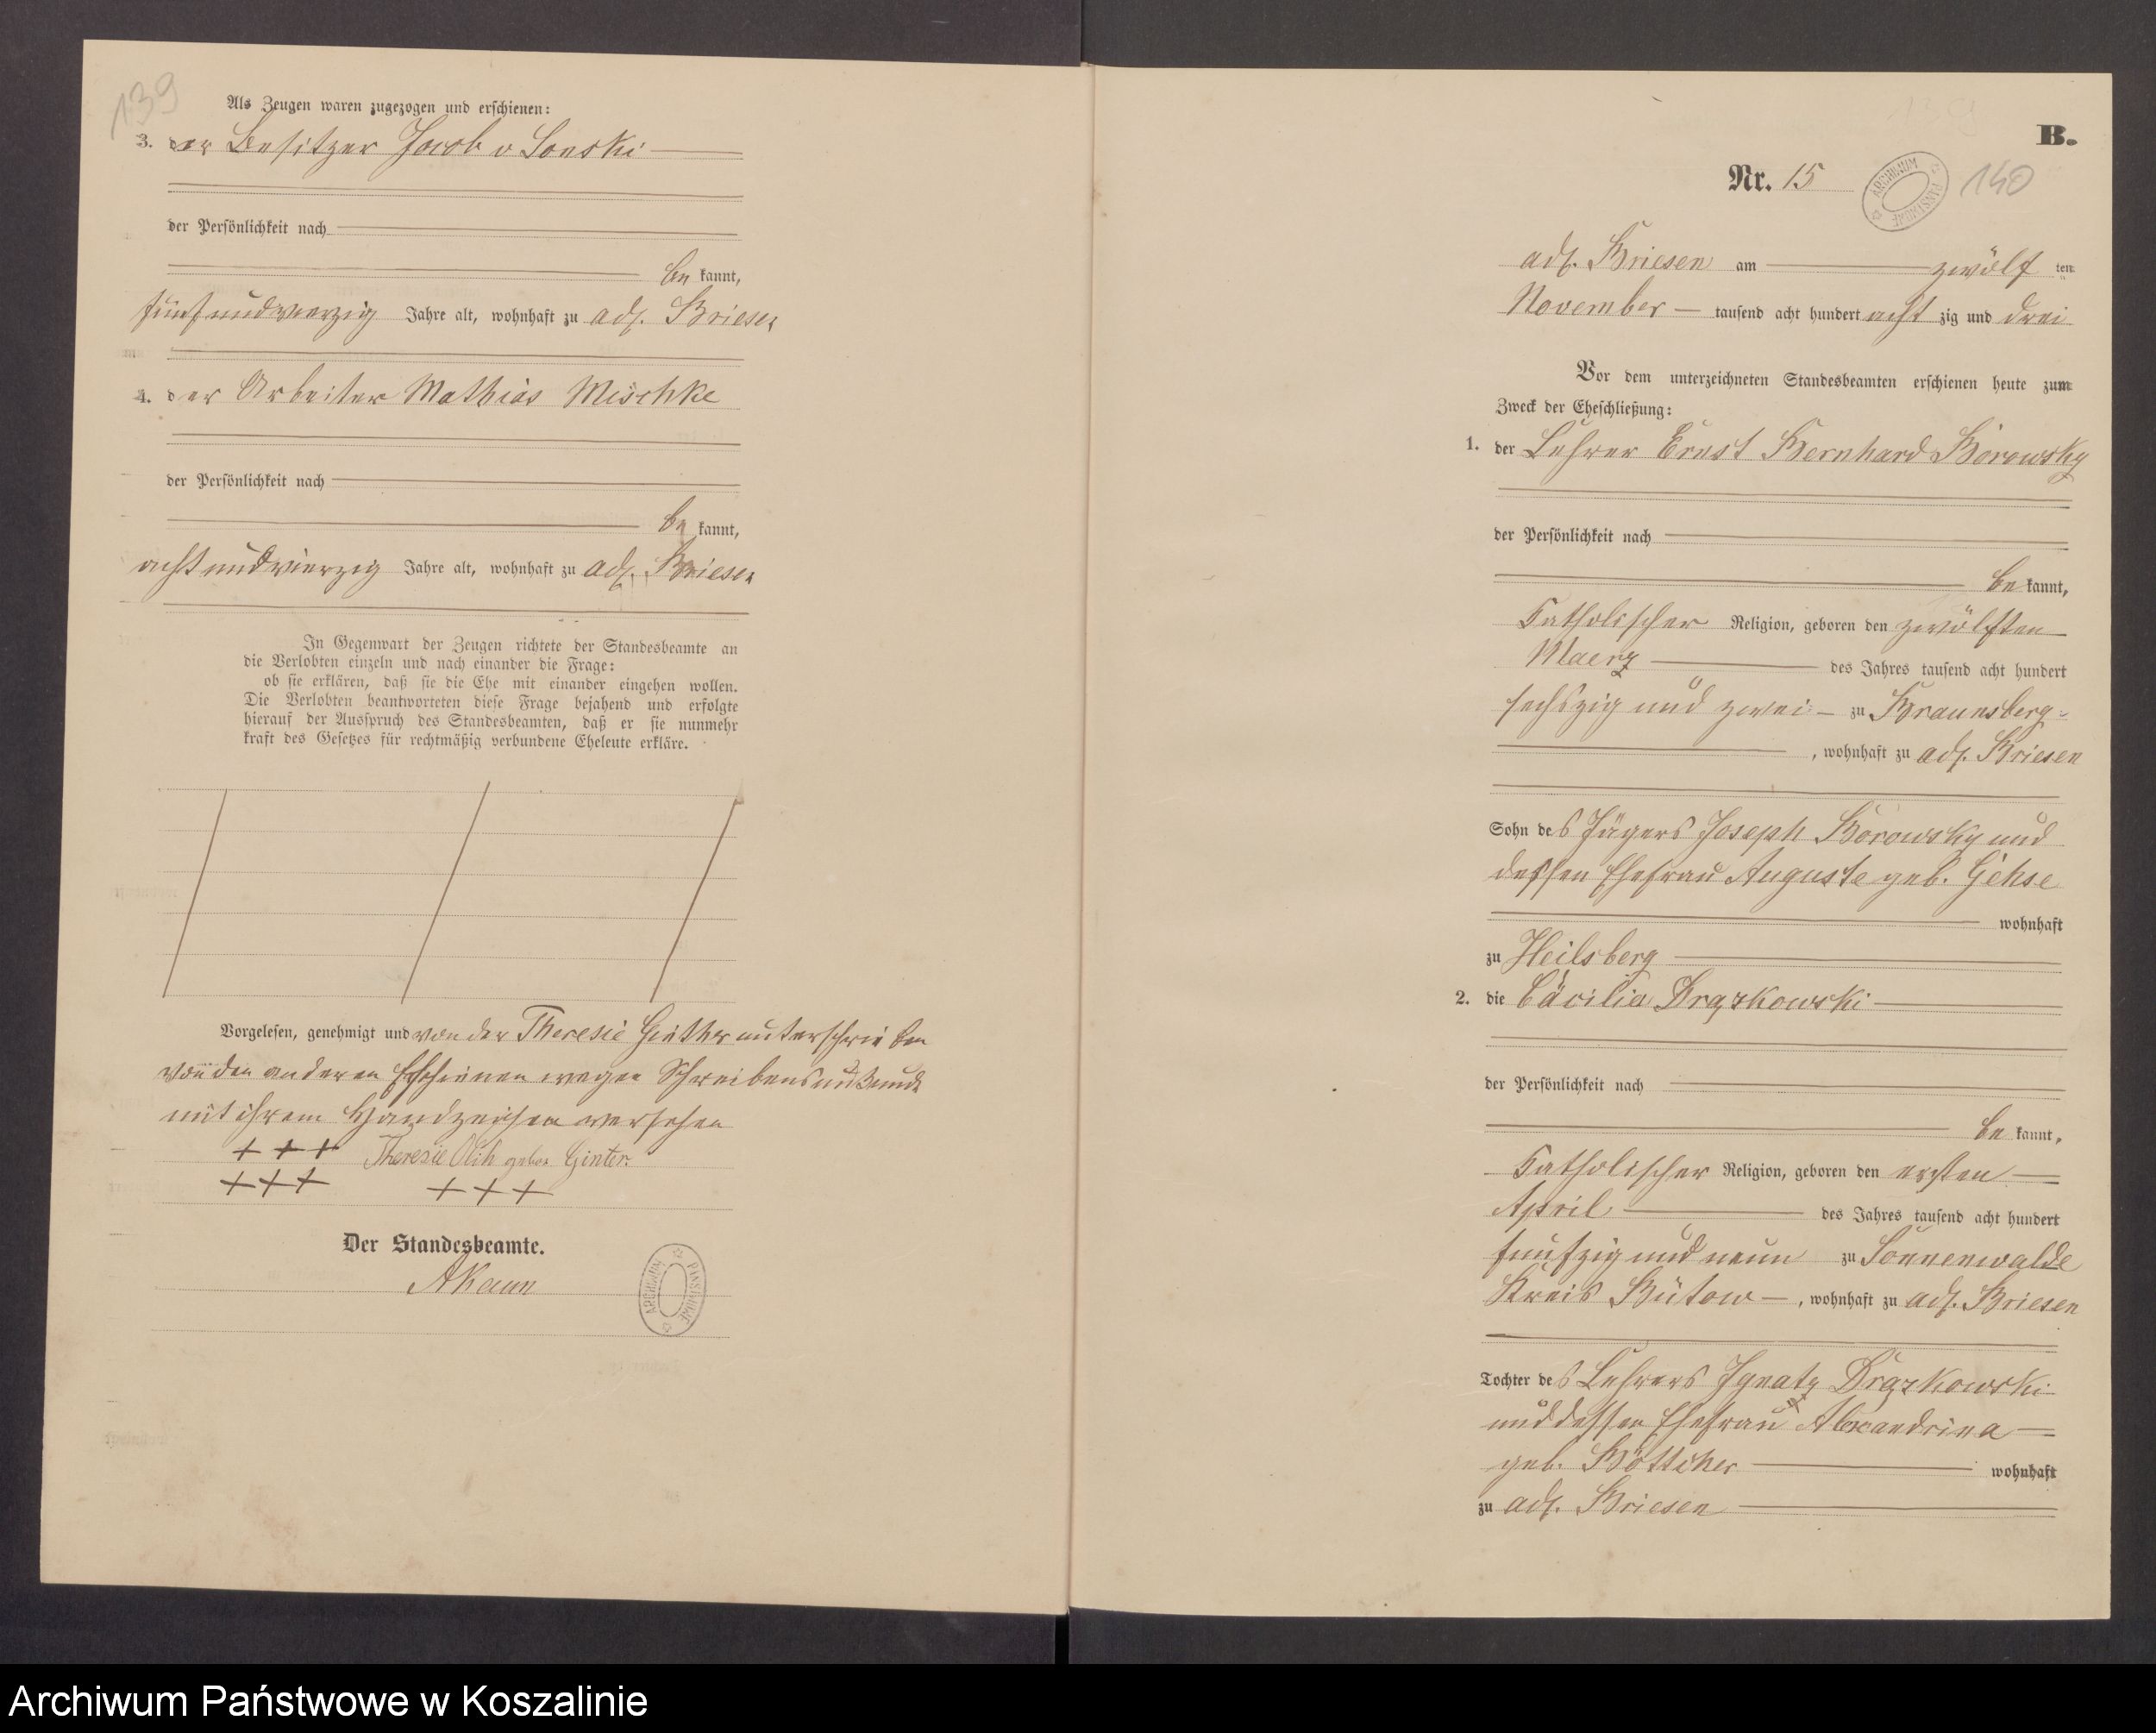 139
Als Zeugen waren zugezogen und erschienen:
3. der Besitzer Jacob v Sonski
der Persönlichkeit nach
be kannt,
fünfundvierzig Jahre alt, wohnhaft zu adl. Briesen
4. der Arbeiter Mathias Mischke
der Persönlichkeit nach
be kannt,
achtundvierzig Jahre alt, wohnhaft zu adl. Briesen
In Gegenwart der Zeugen richtete der Standesbeamte an
die Verlobten einzeln und nach einander die Frage:
ob sie erklären, daß sie die Ehe mit einander eingehen wollen.
Die Verlobten beantworteten diese Frage bejahend und erfolgte
hierauf der Ausspruch des Standesbeamten, daß er sie nunmehr
kraft des Gesetzes für rechtmäßig verbundene Eheleute erkläre.
Vorgelesen, genehmigt und von der Theresie Ginther unterschrieben
von den anderen wegen Schreibensunkunde
mit ihrem Handzeichen versehen
+ + + Theresie gebor. Ginter.
+ + + + + +
Der Standesbeamte.
AKaun
ARCHIWUM PAŃSTWOWE
B.
Nr. 15
ARCHIWUM PAŃSTWOWE
140
adl. Briesen am zwölf ten
November tausend acht hundert acht zig und drei
Vor dem unterzeichneten Standesbeamten erschienen heute zum
Zweck der Eheschließung:
1. der Lehrer Ernst Bernhard Borowsky
der Persönlichkeit nach
be kannt,
katholischer Religion, geboren den zwölften
Maerz des Jahres tausend acht hundert
sechszig und zwei zu Braunsberg
, wohnhaft zu adl. Briesen
Sohn des Jägers Joseph Borowsky und
dessen Ehefrau Auguste geb. Gehse
wohnhaft
zu Heilsberg
2. die Cäcilia Drązkowski
der Persönlichkeit nach
be kannt,
katholischer Religion, geboren den ersten
April des Jahres tausend acht hundert
fünfzig und neun zu Sonnenwalde
Kreis Bütow, wohnhaft zu adl. Briesen
Tochter des Lehrers Ignatz Drązkowski
und dessen Ehefrau Alexandrina
geb. Böttcher wohnhaft
zu adl. Briesen
Archiwum Państwowe w Koszalinie